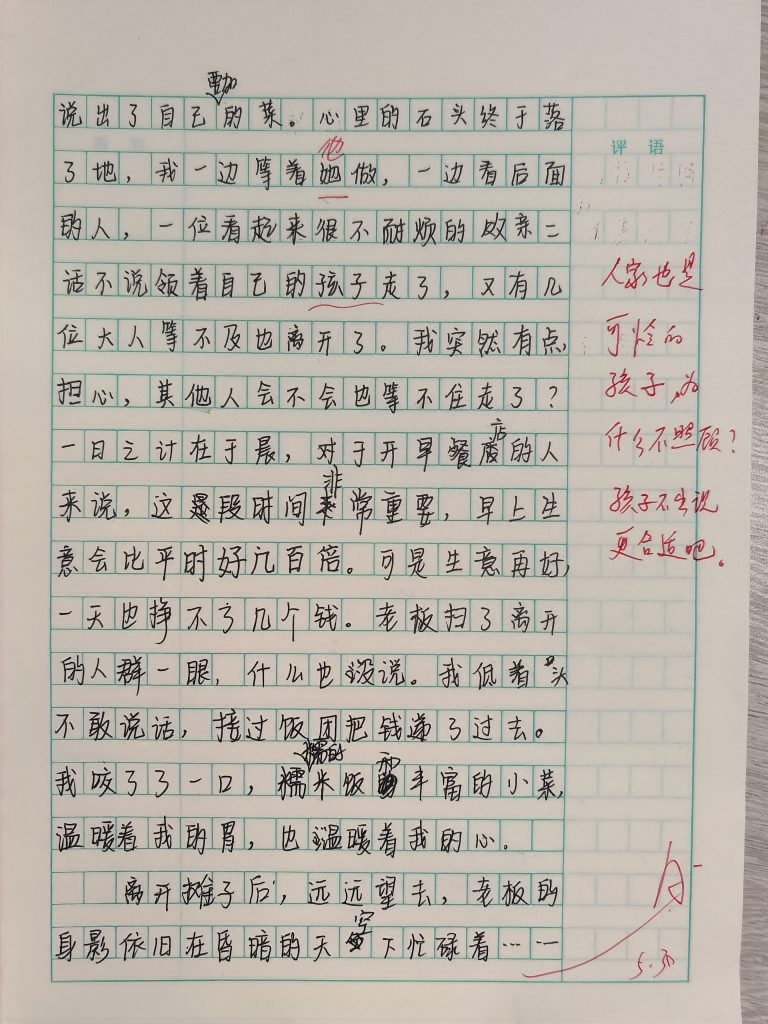 要加
说出了自己的菜。心里的石头终于落
他
了地，我一边等着她做，一边看后面
的人，一位看起来很不耐烦的父亲二
话不说领着自己的孩子走了，又有几
位大人等不及也离开了。我突然有点
担心，其他人会不会也等不住走了？
店
一日之计在于晨，对于开早餐的人
非
来说，这段时间常重要，早上生
意会比平时好几百倍。可是生意再好，
一天也挣不了几个钱。老板扫了离开
的人群一眼，什么也没说。我低着头
不敢说话，接过饭团把钱递了过去。
糯的 和
我咬了了一口，糯米饭丰富的小菜，
温暖着我的胃，也温暖着我的心。
离开摊子后，远远望去，老板的
空
身影依旧在昏暗的天下忙碌着……
评语
人家也是
可怜的
孩子，为
什么不照顾？
孩子不出说
更合适吧。
A-
5.30